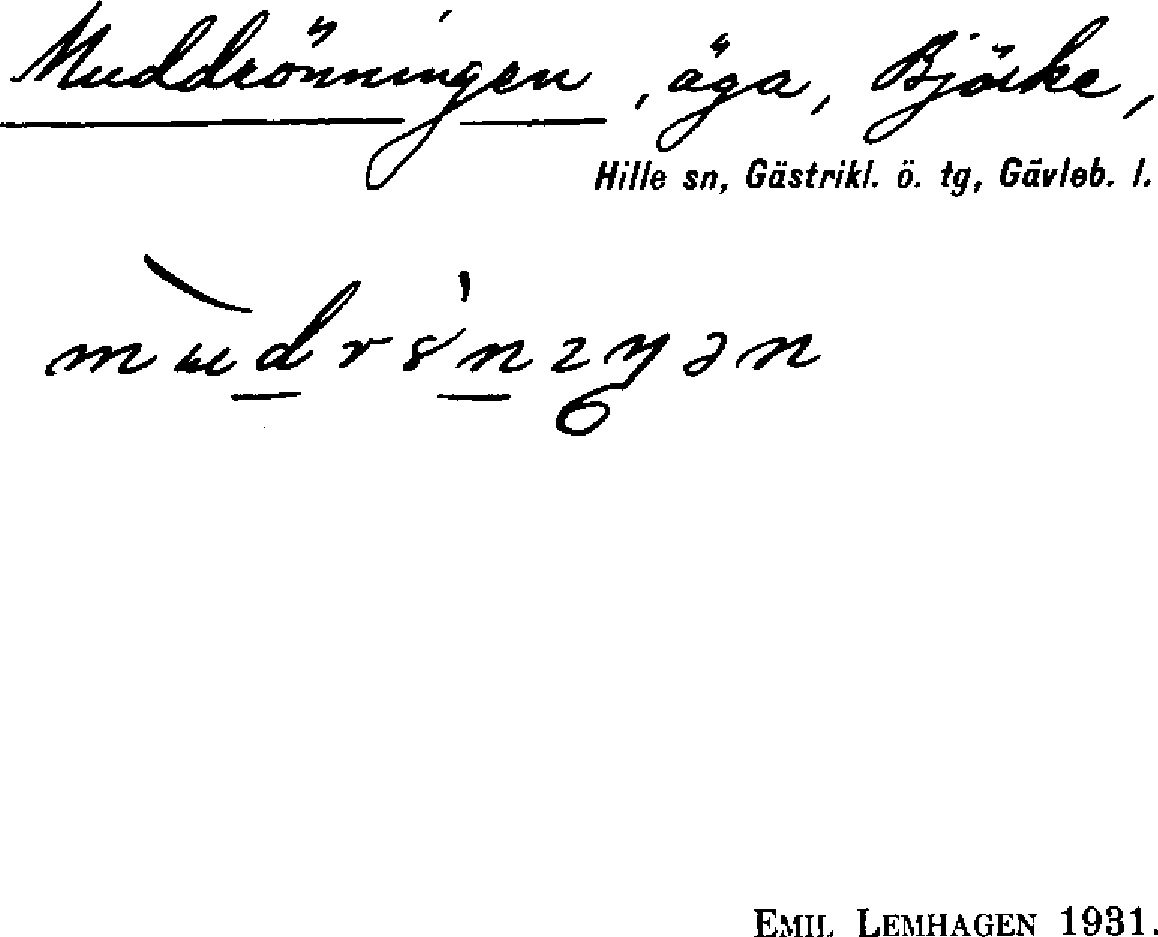 Muddrönningen, äga, Björke,
Hille sn, Gästrikl. ö. tg, Gävleb. l.
EMIL LEMHAGEN 1931.